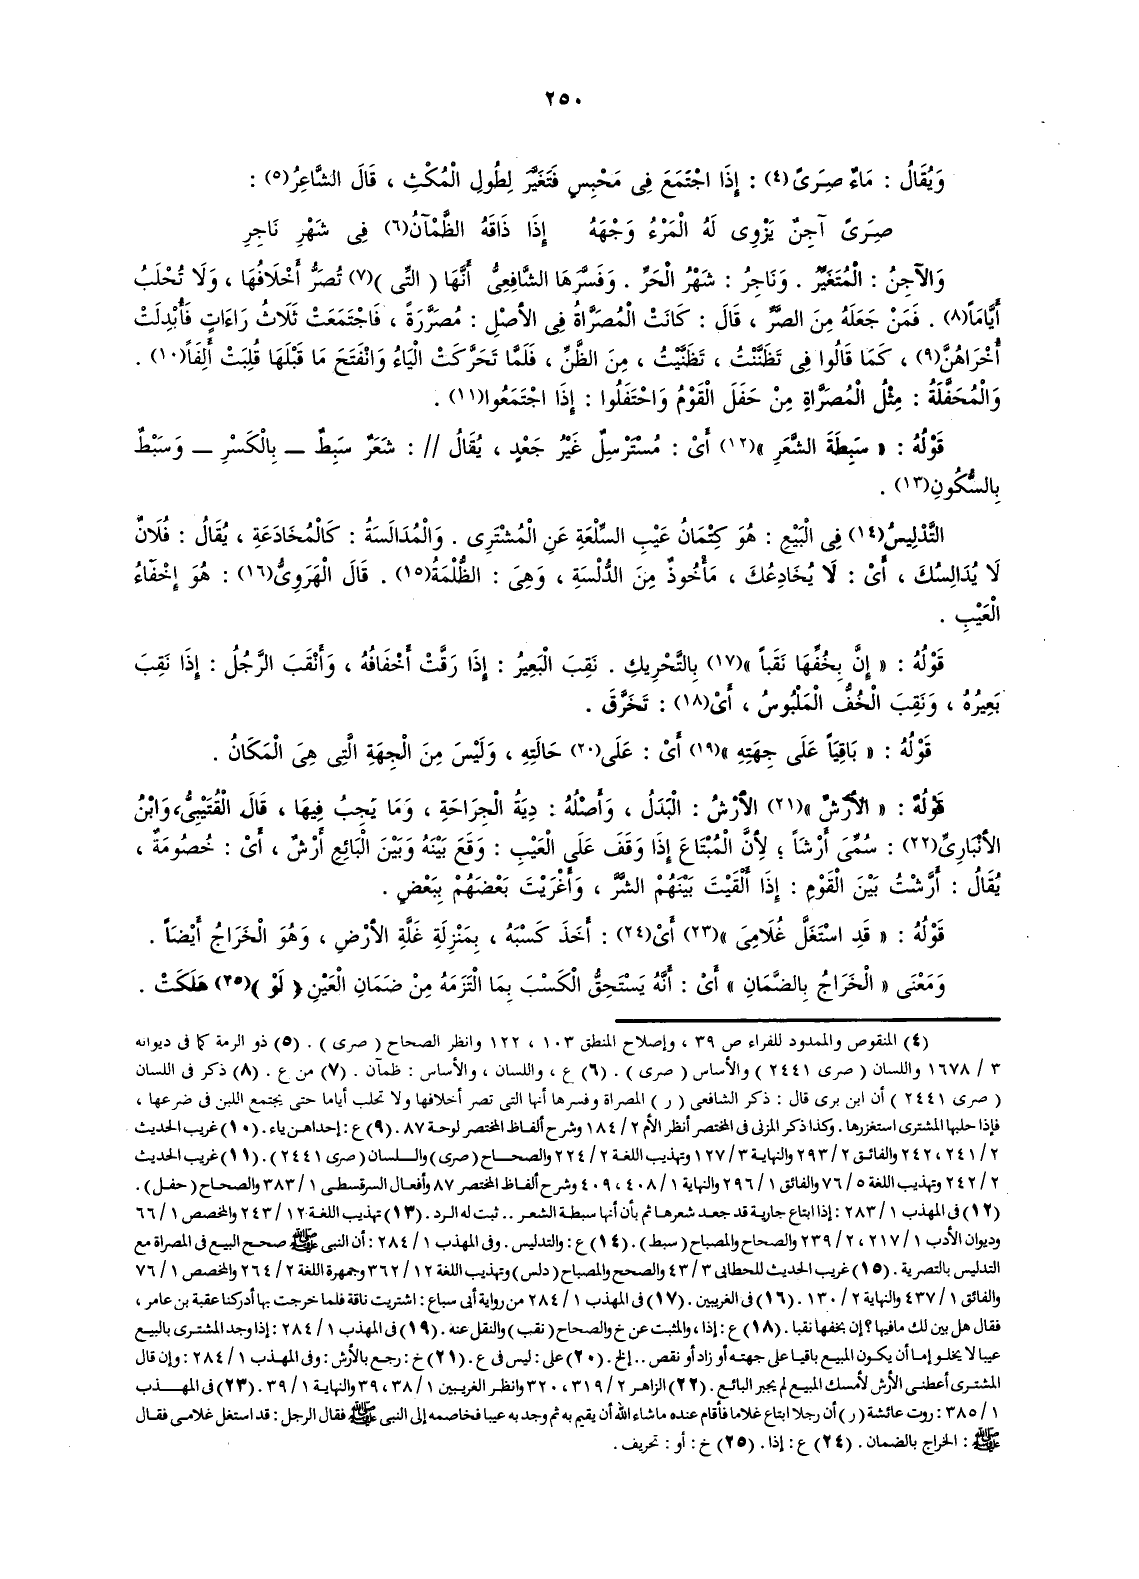 ٢٥٠
وَيُقَالُ : مَاءٌ صِرَىً(٤) : إِذَا اجْتَمَعَ فِى مَحْبِسٍ فَتَغَيَّرَ لِطُولِ الْمُكْثِ ، قَالَ الشَّاعِرُ(٥) :
صِرَىً آجِنٌ يَزْوِى لَهُ الْمَرْءُ وَجْهَهُ إِذَا ذَاقَهُ الظَّمْآنُ(٦) فِى شَهْرِ نَاجِرِ
وَالآجِنُ : الْمُتَغَيِّرُ . وَنَاجِرُ : شَهْرُ الْحَرِّ . وَفَسَّرَهَا الشَّافِعِىُّ أَنَّهَا ( التِّى )(٧) تُصَرُّ أَخْلَافُهَا ، وَلَا تُحْلَبُ
أَيَّامَاً(٨) . فَمَنْ جَعَلَهُ مِنَ الصَّرِّ ، قَالَ : كَانَتْ الْمُصَرَّاةُ فِى الأصْلِ : مُصَرَّرَةً ، فَاجْتَمَعَتْ ثَلَاثُ رَاءَاتٍ فَأُبْدِلَتْ
أُخْرَاهُنَّ(٩) ، كَمَا قَالُوا فِى تَظَنَّنْتُ ، تَظَنَّيْتُ ، مِنَ الظَّنِّ ، فَلَمَّا تَحَرَّكَتْ الْيَاءُ وَانْفَتَحَ مَا قَبْلَهَا قُلِبَتْ أَلِفَاً(١٠) .
وَالْمُحَفَّلَةُ : مِثْلُ الْمُصَرَّاةِ مِنْ حَفَلَ الْقَوْمُ وَاحْتَفَلُوا : إِذَا اجْتَمَعُوا(١١) .
قَوْلُهُ : « سَبِطَةَ الشَّعَرِ »(١٢) أَىْ : مُسْتَرْسِلٌ غَيْرُ جَعْدٍ ، يُقَالُ // : شَعَرٌ سَبِطٌ ــ بِالْكَسْرِ ــ وَسَبْطٌ
بِالسُّكُونِ(١٣) .
التَّدْلِيسُ(١٤) فِى الْبَيْعِ : هُوَ كِتْمَانُ عَيْبِ السِّلْعَةِ عَنِ الْمُشْتَرِى . وَالْمُدَالَسَةُ : كَالْمُخَادَعَةِ ، يُقَالُ : فُلَانٌ
لَا يُدَالِسُكَ ، أَىْ : لَا يُخَادِعُكَ ، مَأْخُوذٌ مِنَ الدُّلْسَةِ ، وَهِىَ : الظُّلْمَةُ(١٥) . قَالَ الْهَرَوِىُّ(١٦) : هُوَ إِخْفَاءُ
الْعَيْبِ .
قَوْلُهُ : « إِنَّ بِخُفِّهَا نَقَباً »(١٧) بِالتَّحْرِيكِ . نَقِبَ الْبَعِيرُ : إِذَا رَقَّتْ أَخْفَافُهُ ، وَأَنْقَبَ الرَّجُلُ : إِذَا نَقِبَ
بَعِيرُهُ ، وَنَقِبَ الْخُفُّ الْمَلْبُوسُ ، أَىْ(١٨) : تَخَرَّقَ .
قَوْلُهُ : « بَاقِيَاً عَلَى جِهَتِهِ »(١٩) أَىْ : عَلَى(٢٠) حَالَتِهِ ، وَلَيْسَ مِنَ الْجِهَةِ الَّتِى هِىَ الْمَكَانُ .
قَوْلُهُ : « الأرْشُ »(٢١) الأَرْشُ : الْبَدَلُ ، وَأَصْلُهُ : دِيَةُ الْجِرَاحَةِ ، وَمَا يَجِبُ فِيهَا ، قَالَ الْقُتَيْبِىُّ،وَابْنُ
الأَنْبَارِىِّ(٢٢) : سُمِّىَ أَرْشَاً ؛ لِأَنَّ الْمُبْتَاعَ إِذَا وَقَفَ عَلَى الْعَيْبِ : وَقَعَ بَيْنَهُ وَبَيْنَ الْبَائِعِ أَرْشٌ ، أَىْ : خُصُومَةٌ ،
يُقَالُ : أَرَّشْتُ بَيْنَ الْقَوْمِ : إِذَا أَلْقَيْتَ بَيْنَهُمْ الشَّرَّ ، وَأَغْرَيْتَ بَعْضَهُمْ بِبَعْضٍ .
قَوْلُهُ : « قَدِ اسْتَغَلَّ غُلَامِىَ »(٢٣) أَىْ(٢٤) : أَخَذَ كَسْبَهُ ، بِمَنْزِلَةِ غَلَّةِ الأَرْضِ ، وَهُوَ الْخَرَاجُ أَيْضَاً .
وَمَعْنَى « الْخَرَاجُ بِالضَّمَانِ » أَىْ : أَنَّهُ يَسْتَحِقُّ الْكَسْبَ بِمَا الْتَزَمَهُ مِنْ ضَمَانِ الْعَيْنِ ( لَوْ )(٢٥) هَلَكَتْ .
(٤) المنقوص والممدود للفراء ص ٣٩ ، وإصلاح المنطق ١٠٣ ، ١٢٢ وانظر الصحاح ( صرى ) . (٥) ذو الرمة كما فى ديوانه
٣ / ١٦٧٨ واللسان ( صرى ٢٤٤١ ) والأساس ( صرى ) . (٦) ع ، واللسان ، والأساس : ظمآن . (٧) من ع . (٨) ذكر فى اللسان
( صرى ٢٤٤١ ) أن ابن برى قال : ذكر الشافعى ( ر ) المصراة وفسرها أنها التى تصر أخلافها ولا تحلب أياما حتى يجتمع اللبن فى ضرعها ،
فإذا حلبها المشترى استغزرها . وكذا ذكر المزنى فى المختصر أنظر الأم ٢ / ١٨٤ وشرح ألفاظ المختصر لوحة ٨٧ . (٩) ع : إحداهن ياء . (١٠) غريب الحديث
٢ / ٢٤١ ، ٢٤٢ والفائق ٢ / ٢٩٣ والنهاية ٣ / ١٢٧ وتهذيب اللغة ٢ / ٢٢٤ والصحاح (صرى) واللسان (صرى ٢٤٤١) . (١١) غريب الحديث
٢ / ٢٤٢ وتهذيب اللغة ٥ / ٧٦ والفائق ١ / ٢٩٦ والنهاية ١ / ٤٠٨ ، ٤٠٩ وشرح ألفاظ المختصر ٨٧ وأفعال السرقسطى ١ / ٣٨٣ والصحاح (حفل) .
(١٢) فى المهذب ١ / ٢٨٣ : إذا ابتاع جارية قد جعد شعرها ثم بأن أنها سبطة الشعر .. ثبت له الرد . (١٣) تهذيب اللغة ١٢ / ٢٤٣ والمخصص ١ / ٦٦
وديوان الأدب ١ / ٢١٧ ، ٢ / ٢٣٩ والصحاح والمصباح (سبط) . (١٤) ع : والتدليس . وفى المهذب ١ / ٢٨٤ : أن النبى ﷺ صحح البيع فى المصراة مع
التدليس بالتصرية . (١٥) غريب الحديث للخطابى ٣ / ٤٣ والصحح والمصباح (دلس) وتهذيب اللغة ١٢ / ٣٦٢ وجمهرة اللغة ٢ / ٢٦٤ والمخصص ١ / ٧٦
والفائق ١ / ٤٣٧ والنهاية ٢ / ١٣٠ . (١٦) فى الغريبين . (١٧) فى المهذب ١ / ٢٨٤ من رواية أبى سباع : اشتريت ناقة فلما خرجت بها أدركنا عقبة بن عامر ،
فقال هل بين لك مافيها ؟ إن بخفها نقبا . (١٨) ع : إذا ، والمثبت عن خ والصحاح (نقب) والنقل عنه . (١٩) فى المهذب ١ / ٢٨٤ : إذا وجد المشترى بالمبيع
عيبا لا يخلو إما أن يكون المبيع باقيا على جهته أو زاد أو نقص .. إلخ . (٢٠) على : ليس فى ع . (٢١) خ : رجع بالأرش : وفى المهذب ١ / ٢٨٤ : وإن قال
المشترى أعطنى الأرش لأمسك المبيع لم يجبر البائع . (٢٢) الزاهر ٢ / ٣١٩ ، ٣٢٠ وانظر الغريبين ١ / ٣٨ ، ٣٩ والنهاية ١ / ٣٩ . (٢٣) فى المهذب
١ / ٣٨٥ : روت عائشة (ر) أن رجلا ابتاع غلاما فأقام عنده ماشاء الله أن يقيم به ثم وجد به عيبا فخاصمه إلى النبى ﷺ فقال الرجل : قد استغل غلامى فقال
ﷺ : الخراج بالضمان . (٢٤) ع : إذا . (٢٥) خ : أو : تحريف .